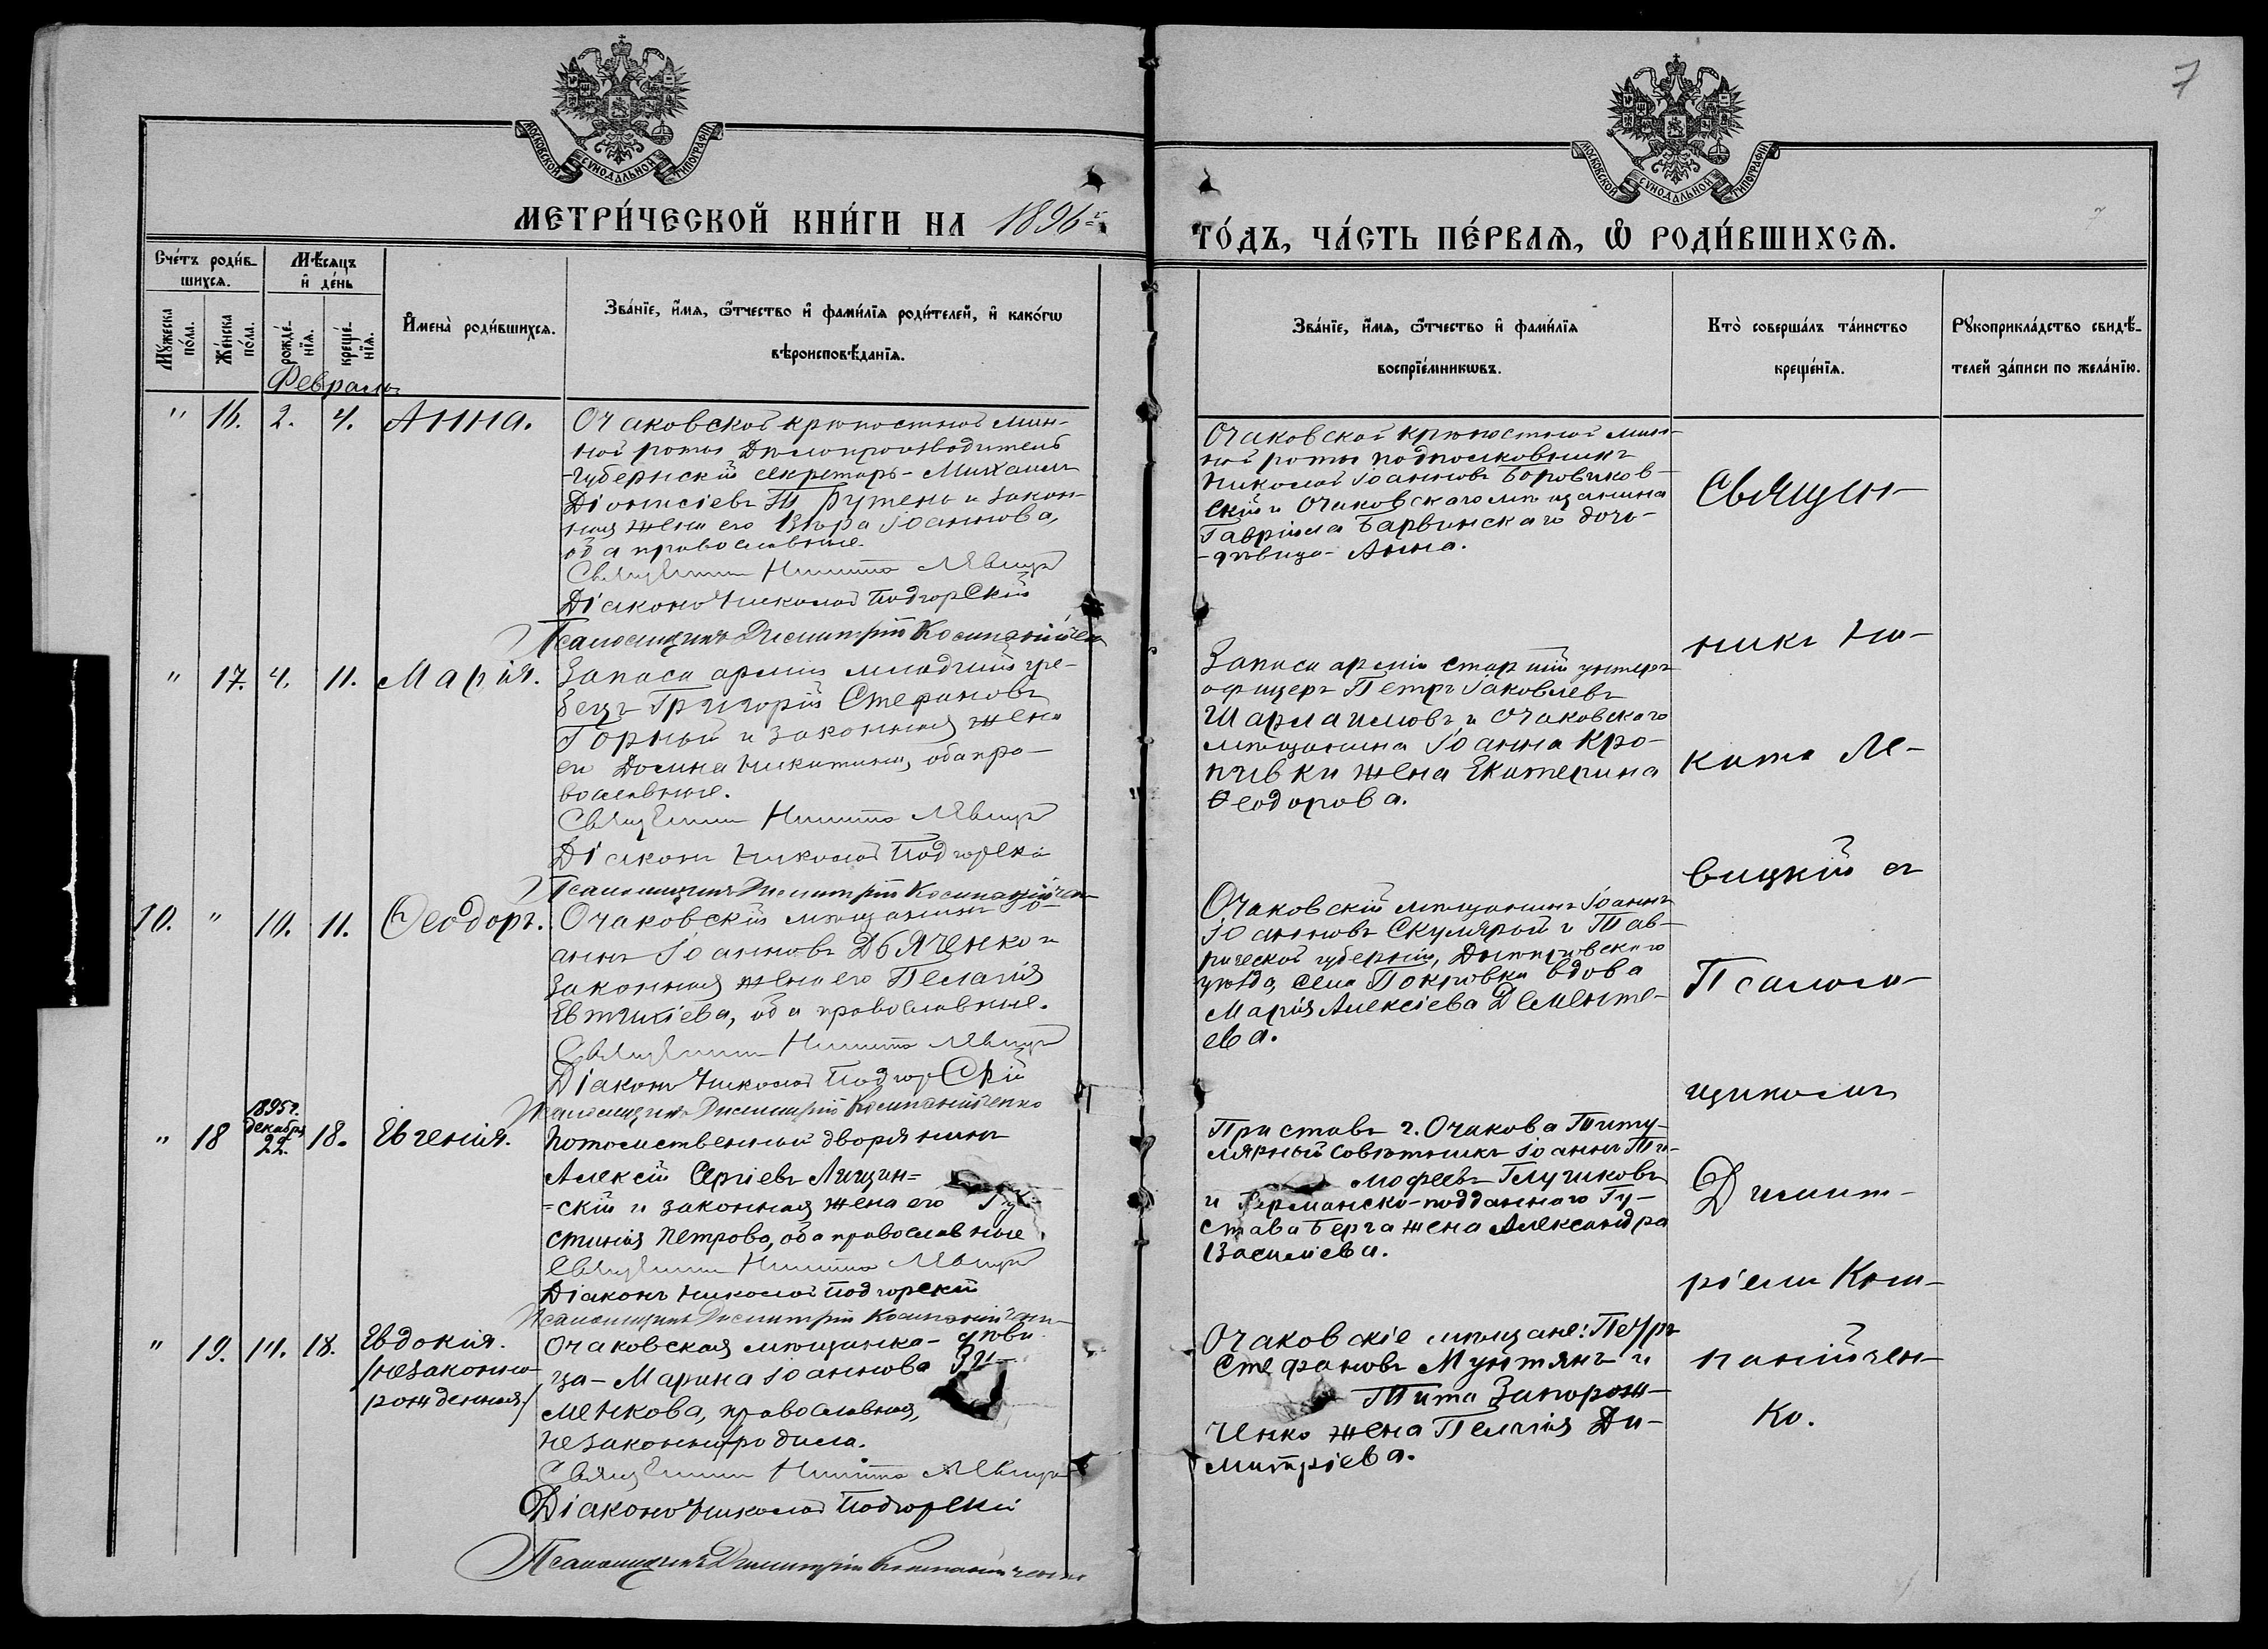 7
МОСКОВСКОЙ СѴНОДАЛЬНОЙ ТИПОГРАФІИ
МОСКОВСКОЙ СѴНОДАЛЬНОЙ ТИПОГРАФІИ
МЕТРИ́ЧЕСКОЙ КНИ́ГИ НА 1896 г.
ГО́ДЪ, ЧА́СТЬ ПЕ́РВАѦ, Ѡ РОДИ́ВШИХСѦ.
Сче́тъ роди́в-
шихсѧ.
Мѣ́сѧцъ
и҆ де́нь
Мꙋ́жеска по́ла.
Же́нска по́ла.
рожде́-
нїѧ.
креще́-
нїѧ.
И҆мена̀ роди́вшихсѧ.
Зва́нїе, и҆́мѧ, ѻ҆́тчество и҆ фами́лїѧ роди́телей, и҆ како́гѡ
вѣроисповѣ́данїѧ.
Зва́нїе, и҆́мѧ, ѻ҆́тчество и҆ фами́лїѧ
воспрїе́мникѡвъ.
Кто̀ соверша́лъ та́инство
креще́нїѧ.
Рꙋкоприкла́дство свидѣ́-
телей за́писи по жела́нїю.
Февраль
" 16. 2. 4. Анна.
Очаковской крѣпостной мин-
ной роты Дѣлопроизводитель
Губернскій секретарь - Михаилъ
Діонисіевъ и закон-
ная жена его Вѣра Іоаннова,
оба православные.
Священникъ Никита Левицкій
Діаконъ Николай Подгорскій
Псаломщикъ Димитрій Компанійченко
Очаковской крѣпостной мин-
ной роты подполковникъ
Николай Іоанновъ Боровиков-
скій и Очаковскаго мѣщанина
Гавріила Барвинскаго дочь-
-дѣвица- Анна.
" 17. 4. 11. Марія.
Запаса арміи младшій
Григорій Стефановъ
Горный и законная жена
его Домна Никитина, оба пра-
вославные.
Священникъ Никита Левицкій
Діаконъ Николай Подгорскій
Псаломщикъ Димитрій Компанійченко
Запаса арміи старшій унтеръ
офицеръ Петръ Іаковлевъ
и Очаковскаго
мѣщанина Іоанна Кро-
пивки жена Екатерина
Ѳеодорова.
10. " 10. 11. Ѳеодоръ.
Очаковскій мѣщанинъ Іо-
аннъ Іоанновъ Дьяченко и
законная жена его Пелагія
Евтихіева, оба православные.
Священникъ Никита Левицкій
Діаконъ Николай Подгорскій
Псаломщикъ Димитрій Компанійченко
Очаковскій мѣщанинъ Іоаннъ
Іоанновъ Скулярой и Тав-
рической губерніи, Днѣпровскаго
уѣзда, села Покровки вдова
Марія Алексіева Дементе-
ева.
" 18 1895 г.
декабря
22. 18. Евгенія.
Потомственный дворянинъ
Алексій Сергіевъ Лищин-
-скій и законная жена его
стинія Петрова, оба православные.
Священникъ Никита Левицкій
Діаконъ Николай Подгорскій
Псаломщикъ Димитрій Компанійченко
Приставъ г. Очакова Титу-
лярный Совѣтникъ Іоаннъ Ти-
мофеевъ Глушковъ
и Германско-подданнаго Гу-
става Берга жена Александра
Василіева.
" 19. 14. 18. Евдокія.
/незаконно-
рожденная/
Очаковская мѣщанка- дѣви-
ца- Марина Іоаннова
менкова, православная,
незаконнородила.
Священникъ Никита Левицкій
Діаконъ Николай Подгорскій
Псаломщикъ Димитрій Компанійченко
Очаковскіе мѣщане: Петръ
Стефановъ Мунтянъ и
Тита Запорож-
ченко жена Пелагія Ди-
митріева.
Священ-
никъ Ни-
кита Ле-
вицкій съ
Псалом-
щикомъ
Димит-
ріемъ Ком-
панійчен-
ко.